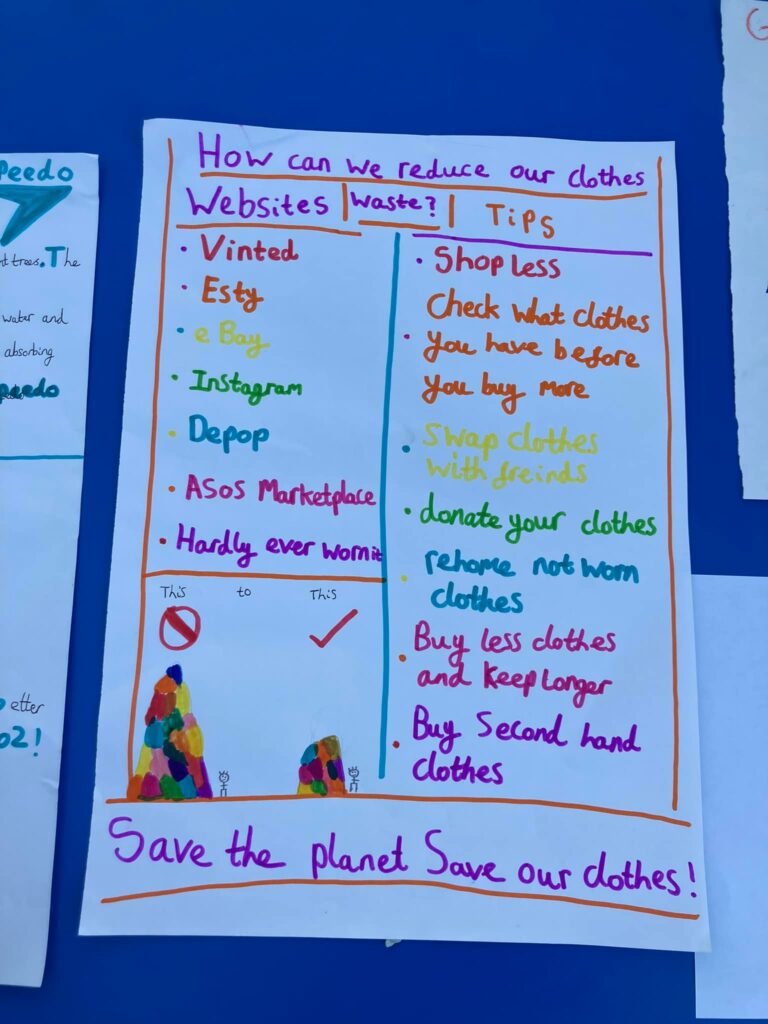 How can we reduce our clothes
waste?
Websites
• Vinted
• Esty
• e Bay
• Instagram
• Depop
• ASOS Marketplace
• Hardly ever worn it
This to This
Tips
• Shop less
• Check what clothes
you have before
you buy more
• Swap clothes
with freinds
• donate your clothes
• rehome not worn
clothes
• Buy less clothes
and Keep longer
• Buy Second hand
clothes
Save the planet Save our clothes!
peedo
trees. The
water and
absorbing
peedo
etter
o2!